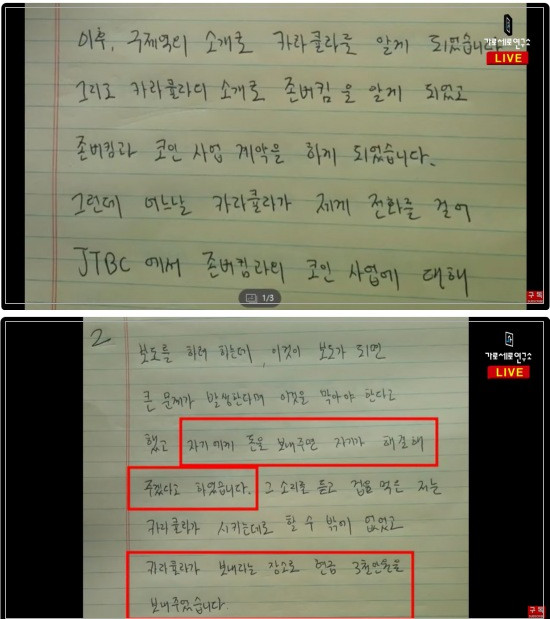 가로세로연구소
LIVE
이후, 구제역의 소개로 카라큘라를 알게 되었습니다.
그리고 카라큘라의 소개로 존버킴을 알게 되었고
존버킴과 코인 사업 계약을 하게 되었습니다.
그런데 어느날 카라큘라가 제게 전화를 걸어
JTBC 에서 존버킴과의 코인 사업에 대해
1/3
구독
2
가로세로연구소
LIVE
보도를 하려 하는데, 이것이 보도가 되면
큰 문제가 발생한다며 이것을 막아야 한다고
했고 자기에게 돈을 보내주면 자기가 해결해
주겠다고 하였습니다. 그 소리를 듣고 겁을 먹은 저는
카라큘라가 시키는데로 할 수 밖에 없었고
카라큘라가 보내라는 장소로 현금 3천만원을
보내주었습니다.
구독